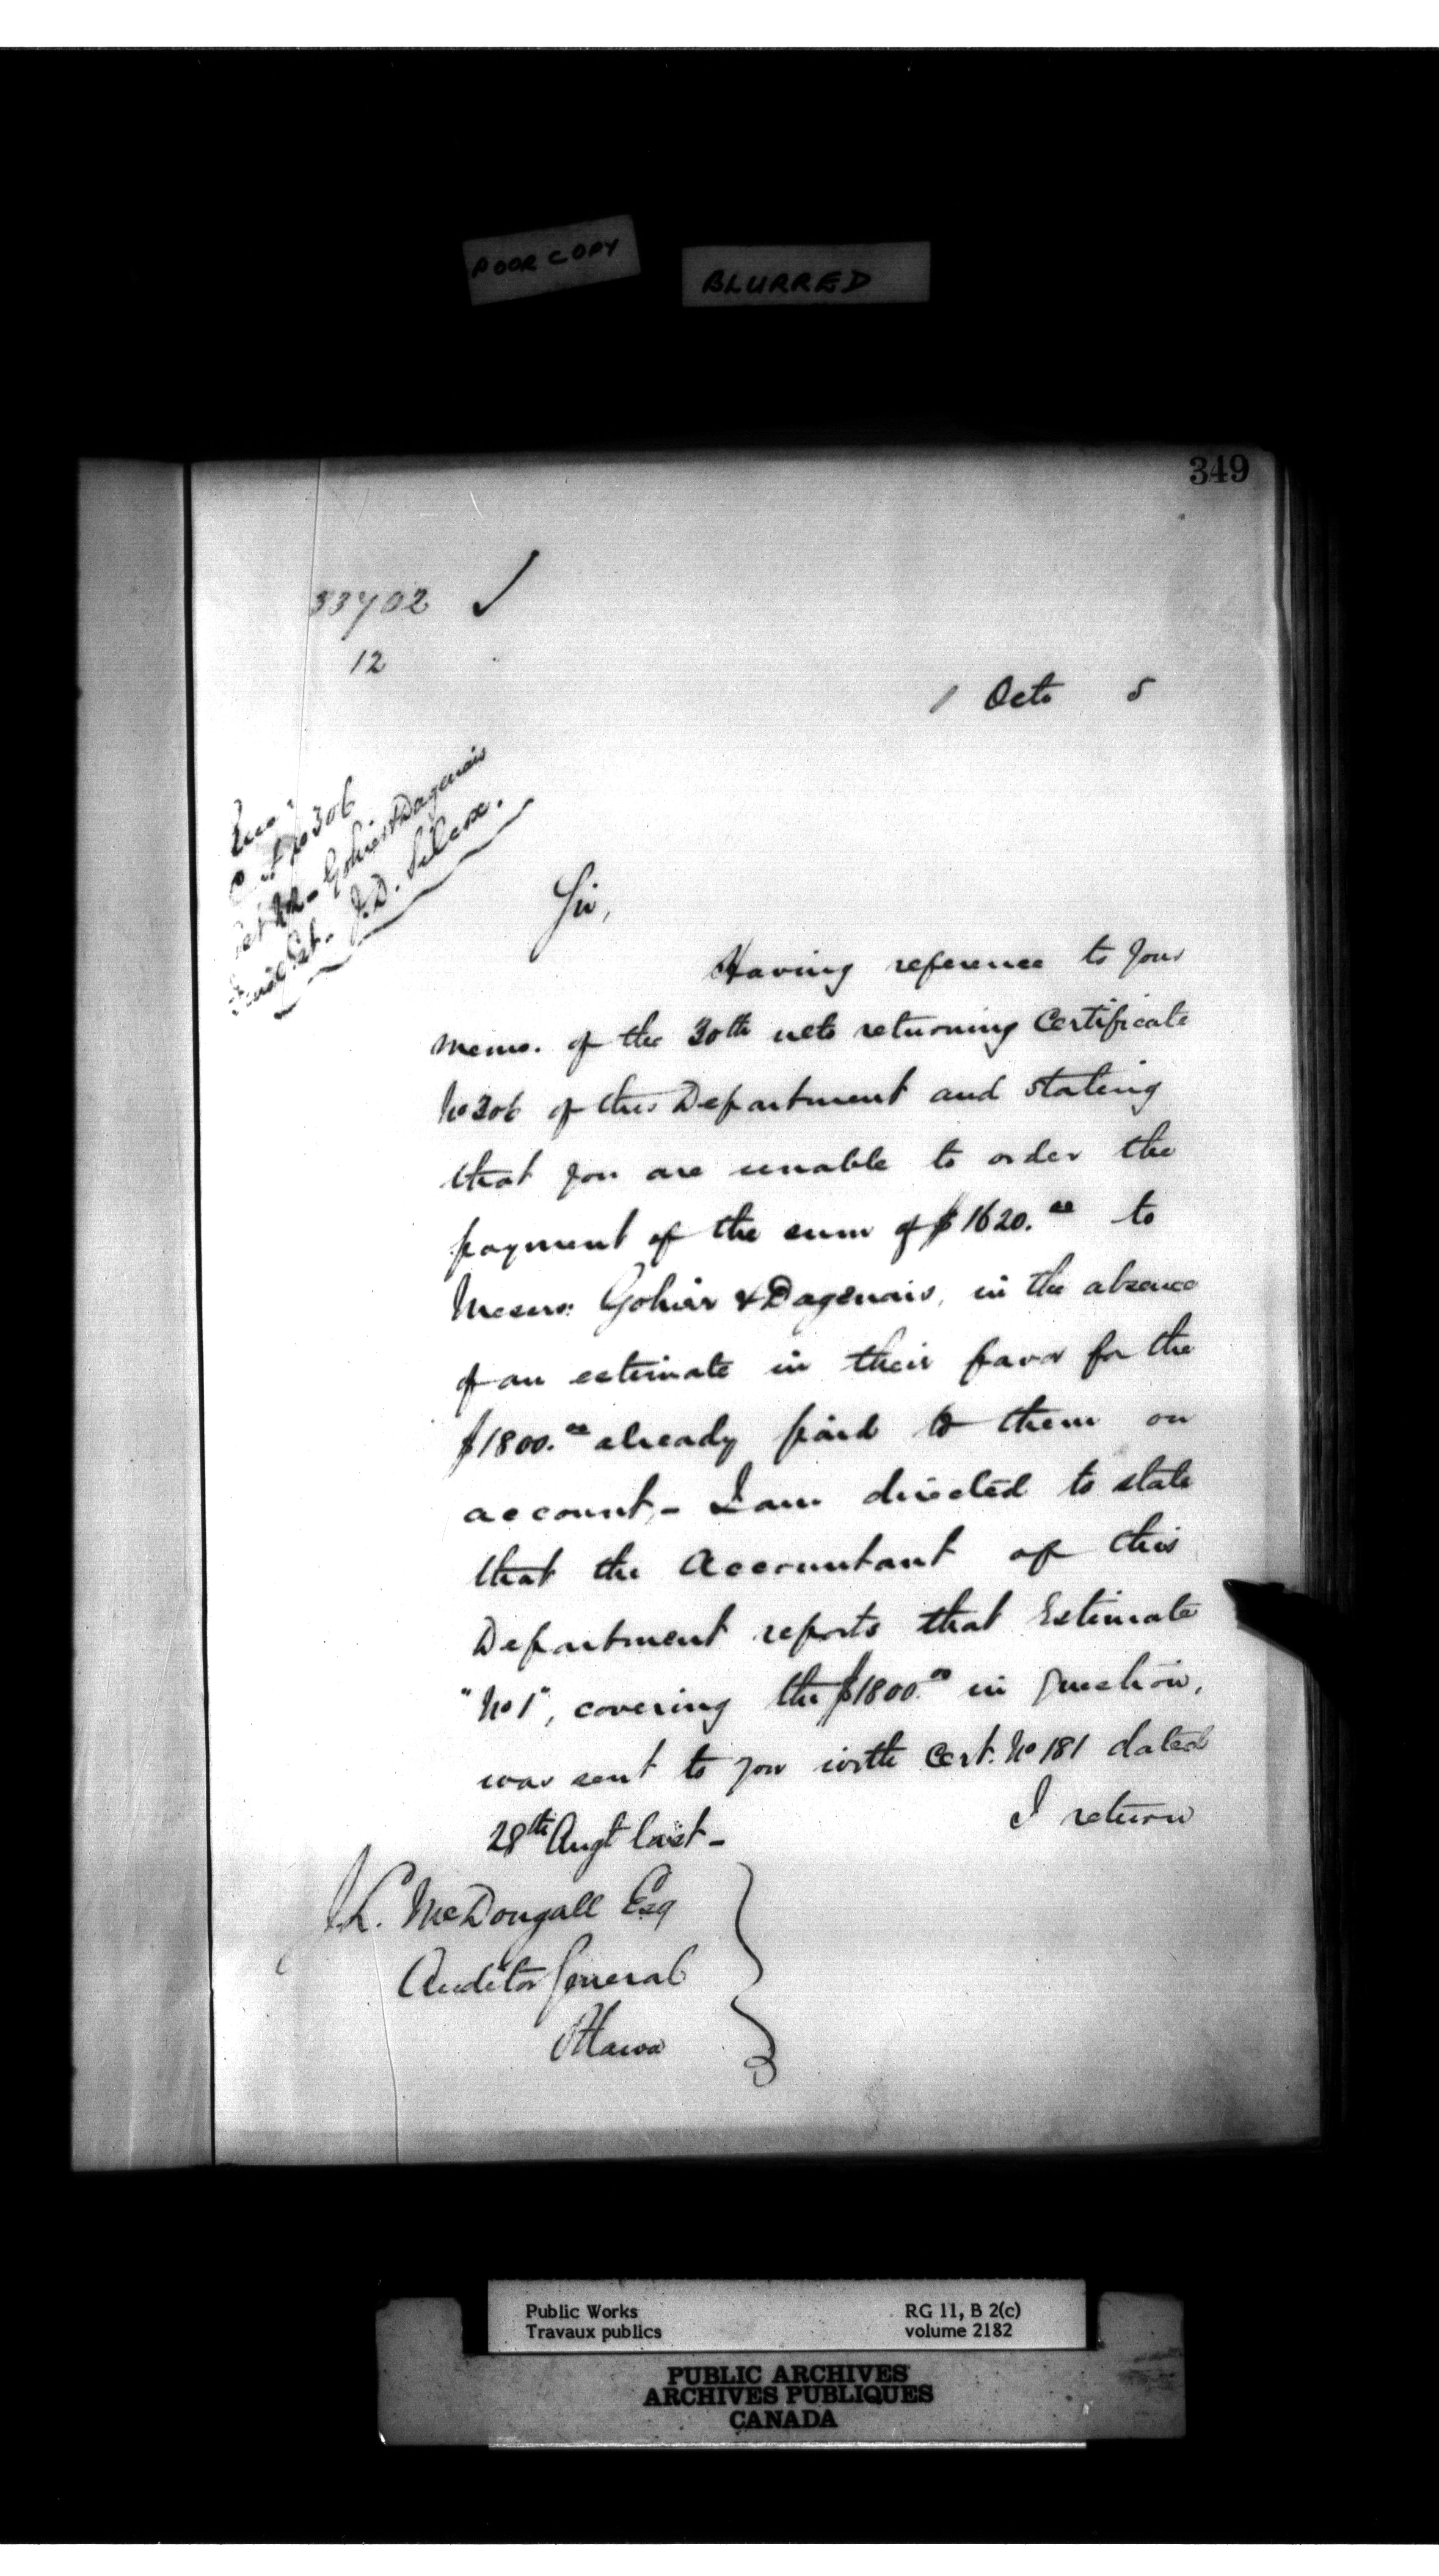 POOR COPY
BLURRED
349
33702
12
1 Octo 5
Cert No 306
Gohier & Dagenais
J.D. Silcox.
Sir,
Having reference to your
memo. of the 30th ulto returning Certificate
No 306 of this Department and stating
that you are unable to order the
payment of the sum of $1620.00 to
Messrs: Gohier & Dagenais, in the absence
of an estimate in their favor for the
$1800.00 already paid to them on
account,- I am directed to state
that the Accountant of this
Department reports that Estimate
"No 1", covering the $1800.00 in question,
was sent to you with Cert. No 181 dated
28th Augt last -
I return
J.L. McDougall Esq
Auditor General
Ottawa
Public Works
Travaux publics
RG 11, B 2(c)
volume 2182
PUBLIC ARCHIVES
ARCHIVES PUBLIQUES
CANADA